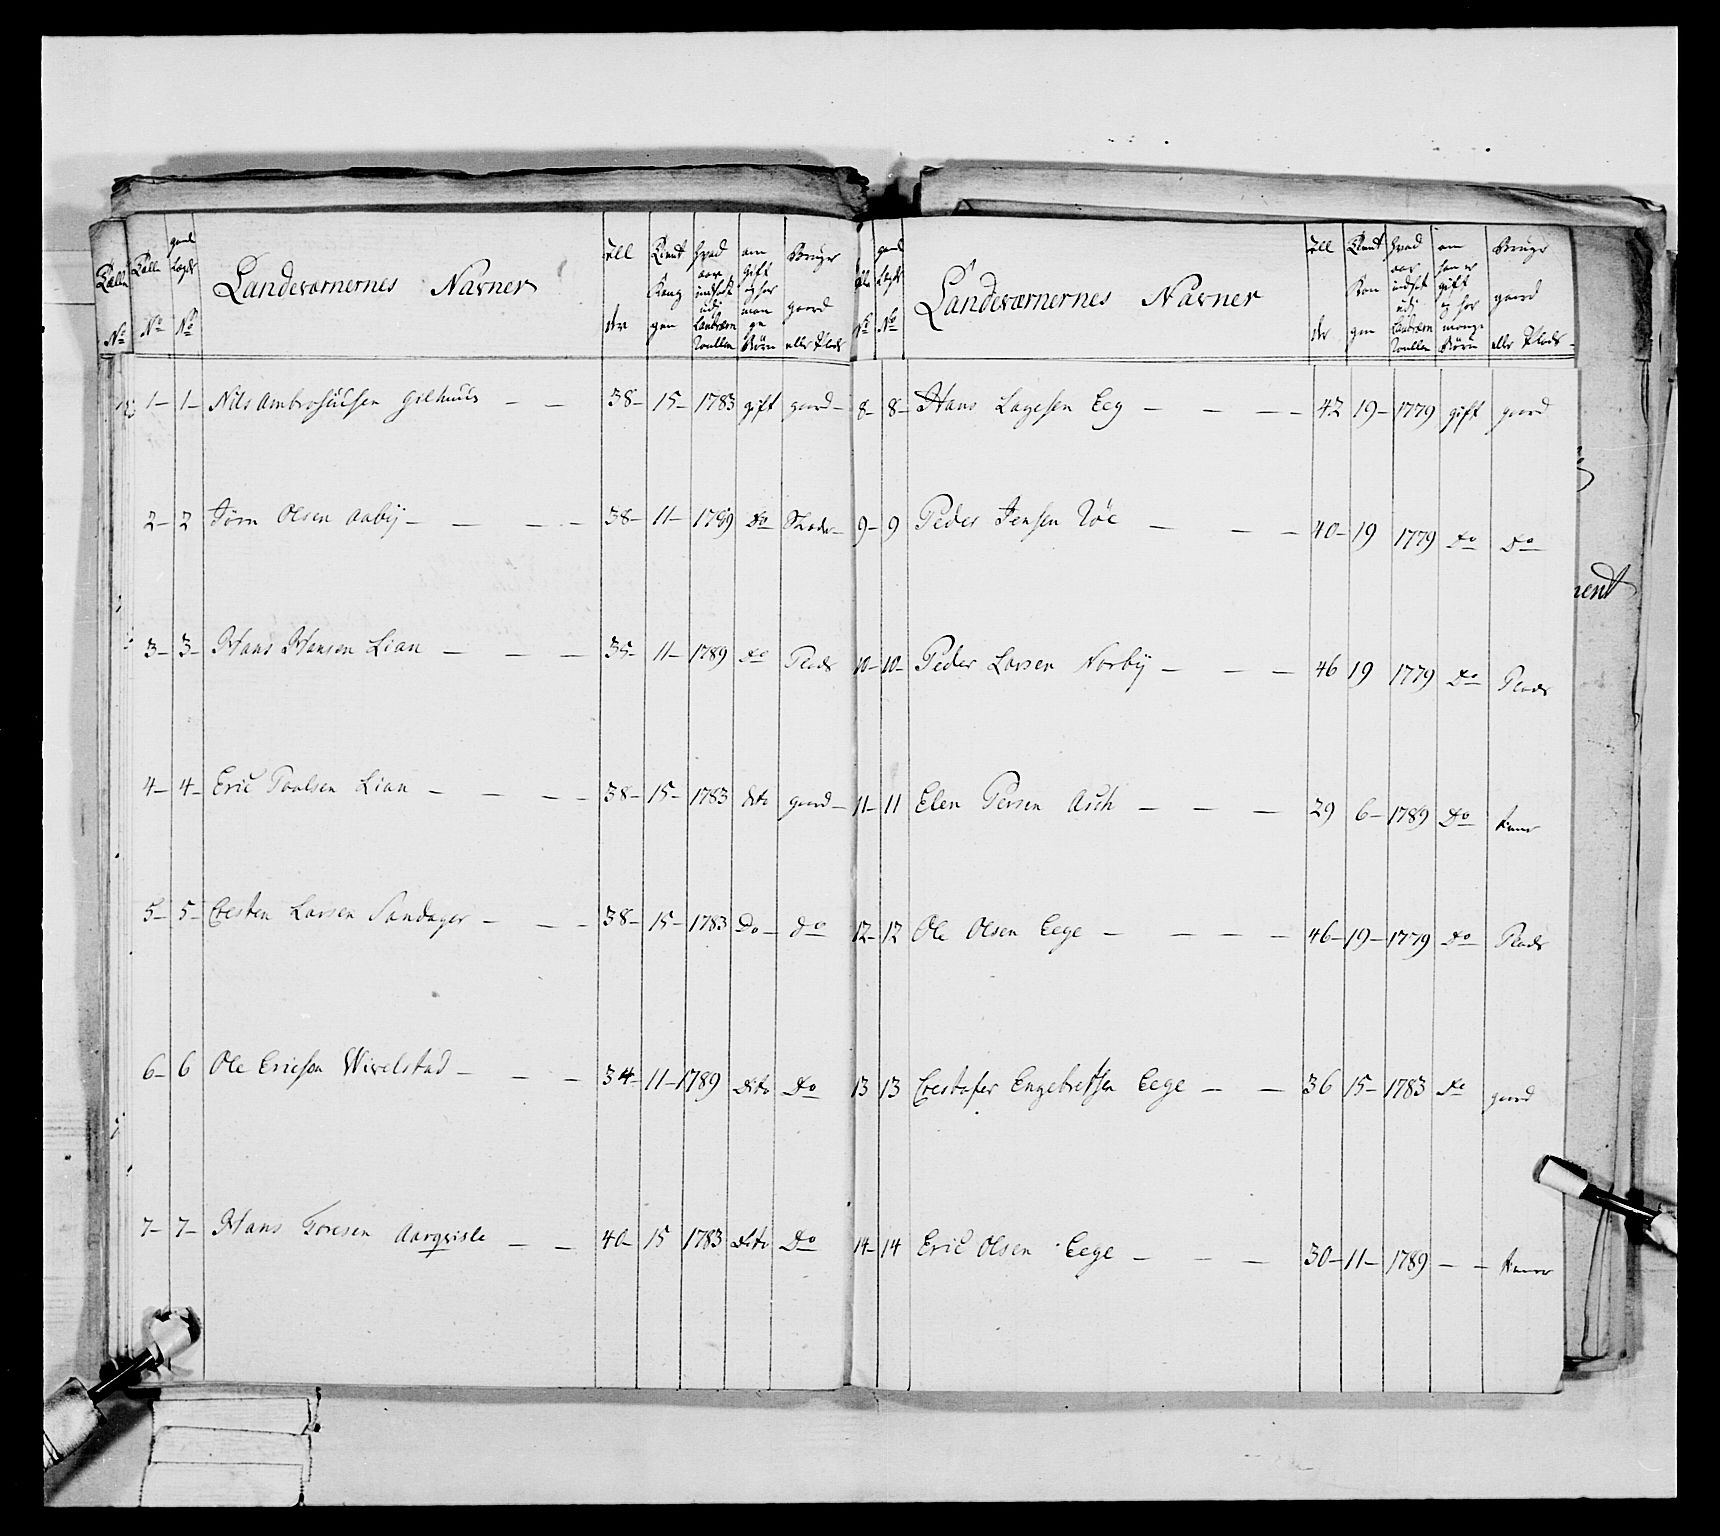 Rulle No
gamle Lægds No
Landeværnernes Navner
All der
hvad aar indsat udj Landværn Roullen
om gift og har mange Børn
Bruger gaard eller Plads
1 – 1 – Nils Ambrosiusen Gilhuus – – 38 – 15 – 1783 gift gaard –
2 – 2 Jörn Olsen Aabÿ – – – – 38 – 11 – 1789 Do
3 – 3 – Hans Hansen Lian – – – 35 – 11 – 1789 do Plads
4 – 4 – Eric Poulsen Lian – – – – 38 – 15 – 1783 dito gaard –
5 – 5 – Cresten Larsen Sandager – – – 38 – 15 – 1783 Do – do
6 – 6 Ole Ericsen Wivelstad – – – 34 – 11 – 1789 Dito Do
7 – 7 – Hans Toresen Aarqvisle – – 40 – 15 1783 dito Do
No
gamle Lægds No
Landeværnernes Navner
All der
hvad aar indsat udj Landværn Roullen
om han er gift og har mange Børn
Bruger gaard eller Plads
8 – 8 – Hans Lagesen Eeg – – – – 42 19 – 1779 gift gaard
9 – 9 Peder Jensen Röe – – – 40 – 19 1779 Do Do
10 – 10 – Peder Larsen Norbÿ – – – 46 19 1779 Do Plads
11 – 11 Elen Persen Asch – – – 29 6 – 1789 Do
12 – 12 Ole Olsen Eege – – – – 46 – 19 – 1779 Do Plads
13 13 Crestofer Engebretsen Eege – – 36 15 – 1783 Do gaard
14 – 14 Eric Olsen Eege – – – 30 – 11 – 1789 – –